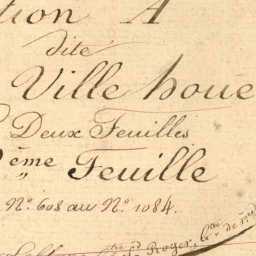 tion A
dite
Ville houe
Deux Feuilles
ème Feuille
N.º 608 au N.º 1084.
Roger,